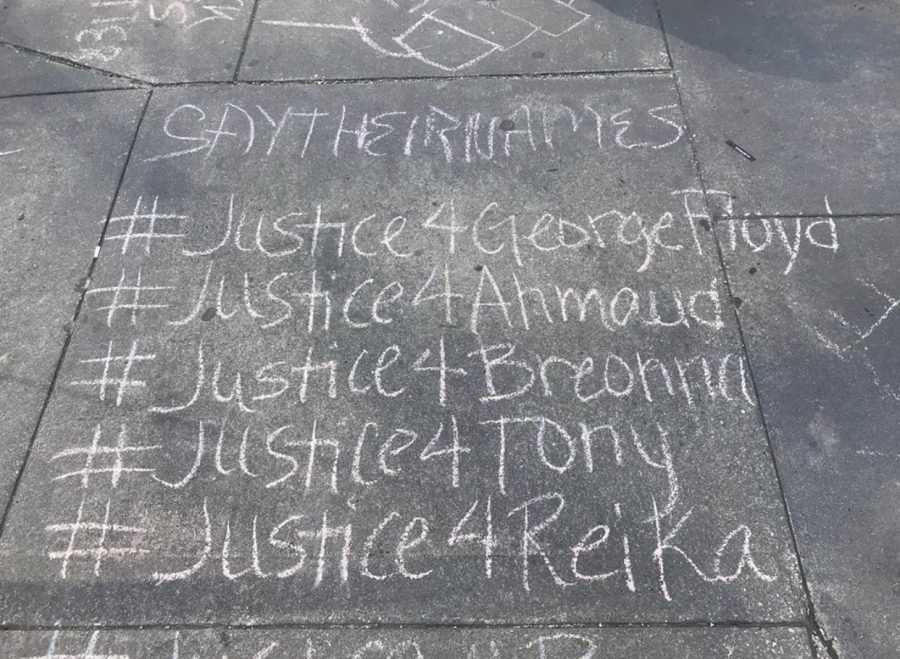 SAYTHEIRNAMES
#Justice4GeorgeFloyd
#Justice4Ahmaud
#Justice4Breonna
#Justice4Tony
#Justice4Reika